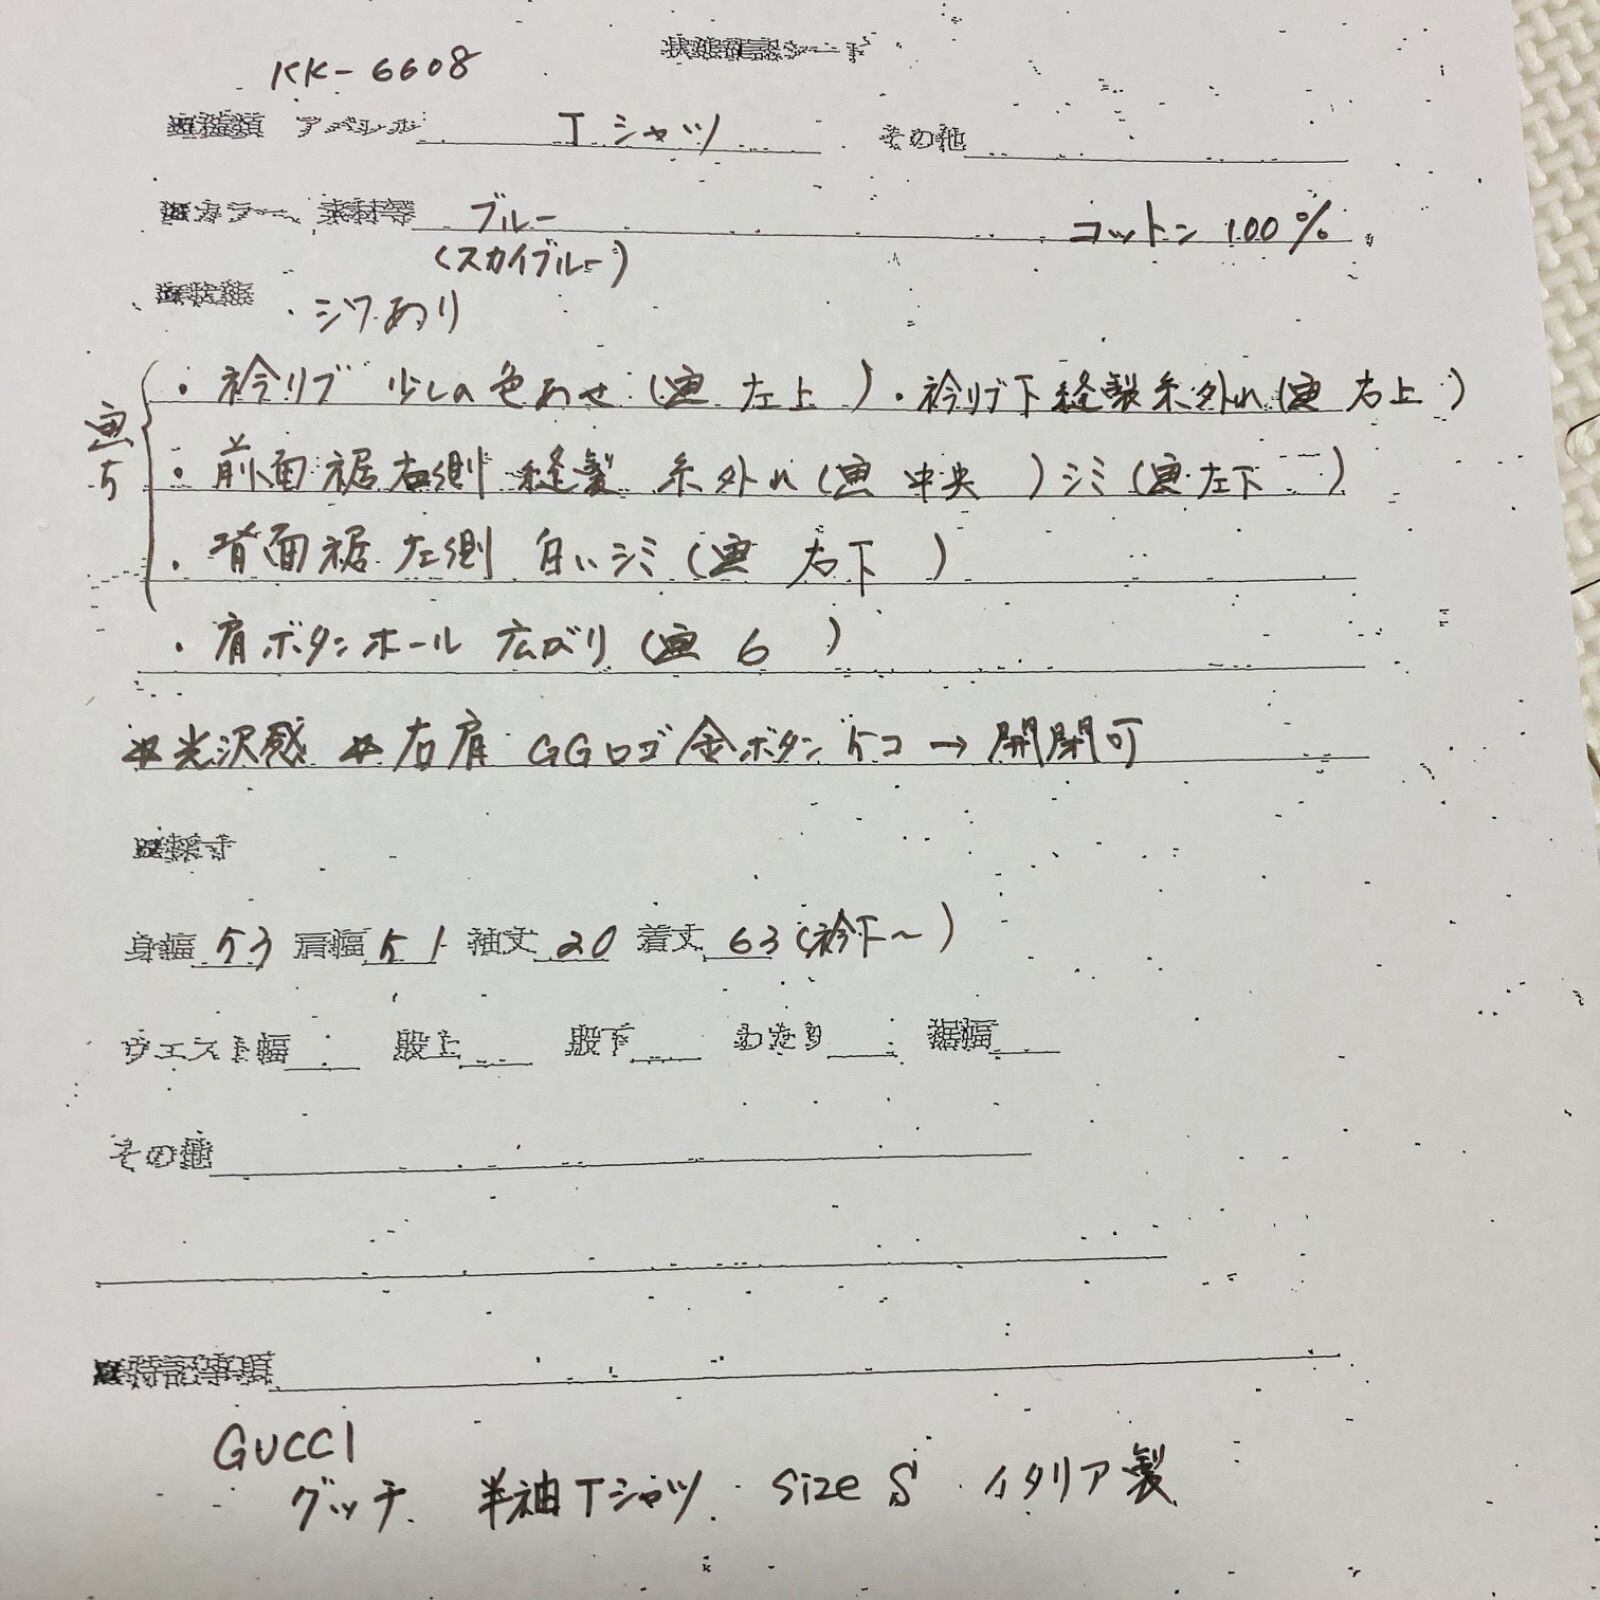 状態確認シート
KK-6608
■種類 アパレル Tシャツ その他
■カラー、素材等 ブルー コットン 100%
(スカイブルー)
■状態 ・シワあり
画5
・衿リブ 少しの色あせ (画 左上 ) ・衿リブ下縫製糸外れ (画 右上 )
・前面裾右側 縫製 糸外れ (画 中央 ) シミ (画 左下 )
・背面裾 左側 白いシミ (画 右下 )
・肩ボタンホール 広がり (画 6 )
*光沢感 *右肩 GGロゴ 金ボタン 5コ → 開閉可
■採寸
身幅 53 肩幅 51 袖丈 20 着丈 63 (衿下~)
ウエスト幅 股上 股下 わたり 裾幅
その他
■特記事項
GUCCI
グッチ 半袖Tシャツ. size S . イタリア製